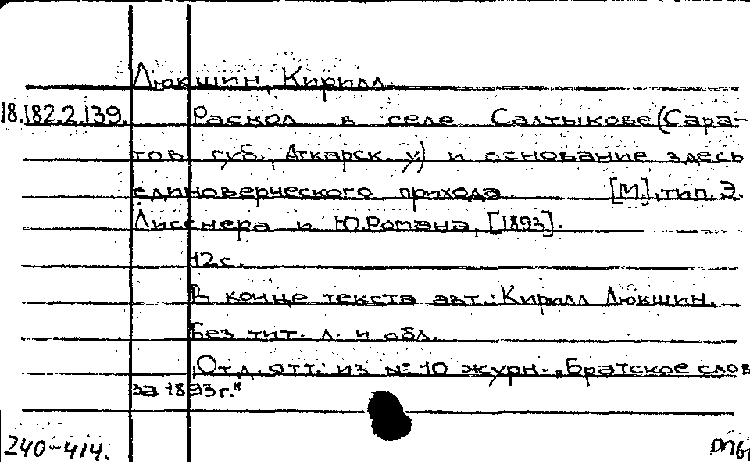 Люкшин, Кирилл.
18.182.2.139. Раскол в селе Салтыкове (Сара-
тов. губ., Аткарск. у.) и основание здесь
единоверческого прихода. [М], тип. Э.
Лисснера и Ю. Романа, [1893].
12 с.
В конце текста авт.: Кирилл Люкшин.
Без тит. л. и обл.
Отд. отт. из № 10 журн. "Братское слов
за 1893 г."
240-414.